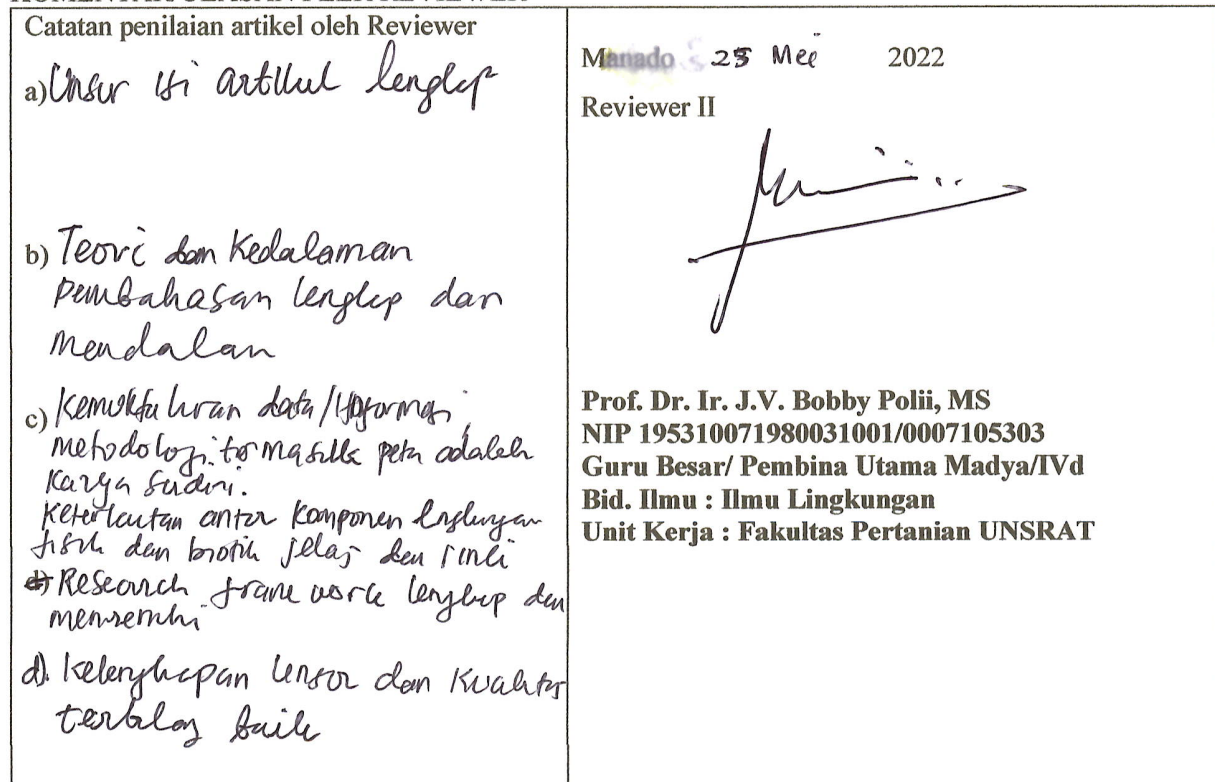 Catatan penilaian artikel oleh Reviewer
a) Unsur isi artikel lengkap
b) Teori dan Kedalaman
pembahasan lengkap dan
mendalam
c) Kemuktahiran data/Informasi,
metodologi termasuk peta adalah
Karya Sendiri.
Keterkaitan antar Komponen lingkungan
fisik dan biotik jelas dan rinci
Research frame work lengkap dan
d). Kelengkapan Unsur dan Kualitas
terbilang baik
Manado 25 Mei 2022
Reviewer II
Prof. Dr. Ir. J.V. Bobby Polii, MS
NIP 195310071980031001/0007105303
Guru Besar/ Pembina Utama Madya/IVd
Bid. Ilmu : Ilmu Lingkungan
Unit Kerja : Fakultas Pertanian UNSRAT